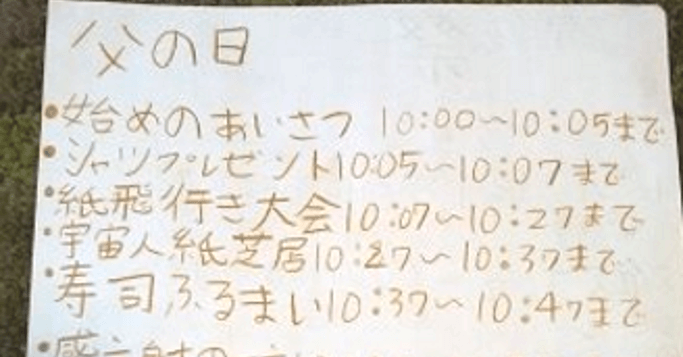 父の日
・始めのあいさつ 10:00〜10:05まで
・シャツプレゼント10:05〜10:07まで
・紙飛行き大会10:07〜10:27まで
・宇宙人紙芝居10:27〜10:37まで
・寿司ふるまい10:37〜10:47まで